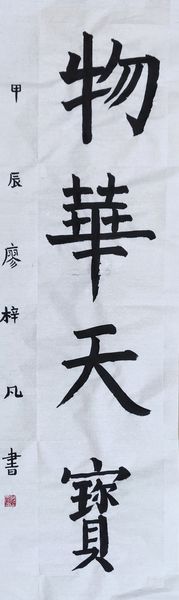 物華天寶
甲辰廖梓凡書